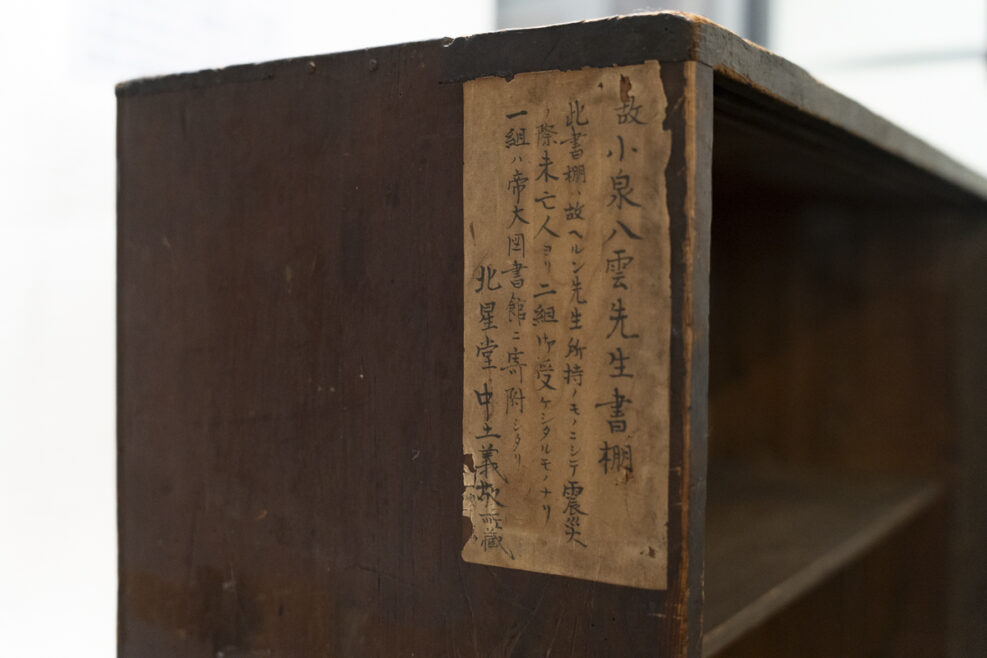 故小泉八雲先生書棚
此書棚ハ故ヘルン先生所持ノモノニシテ震災
ノ際未亡人ヨリ二組御受ケシタルモノナリ
一組ハ帝大図書館ニ寄附シタリ
北星堂中土義敬所蔵